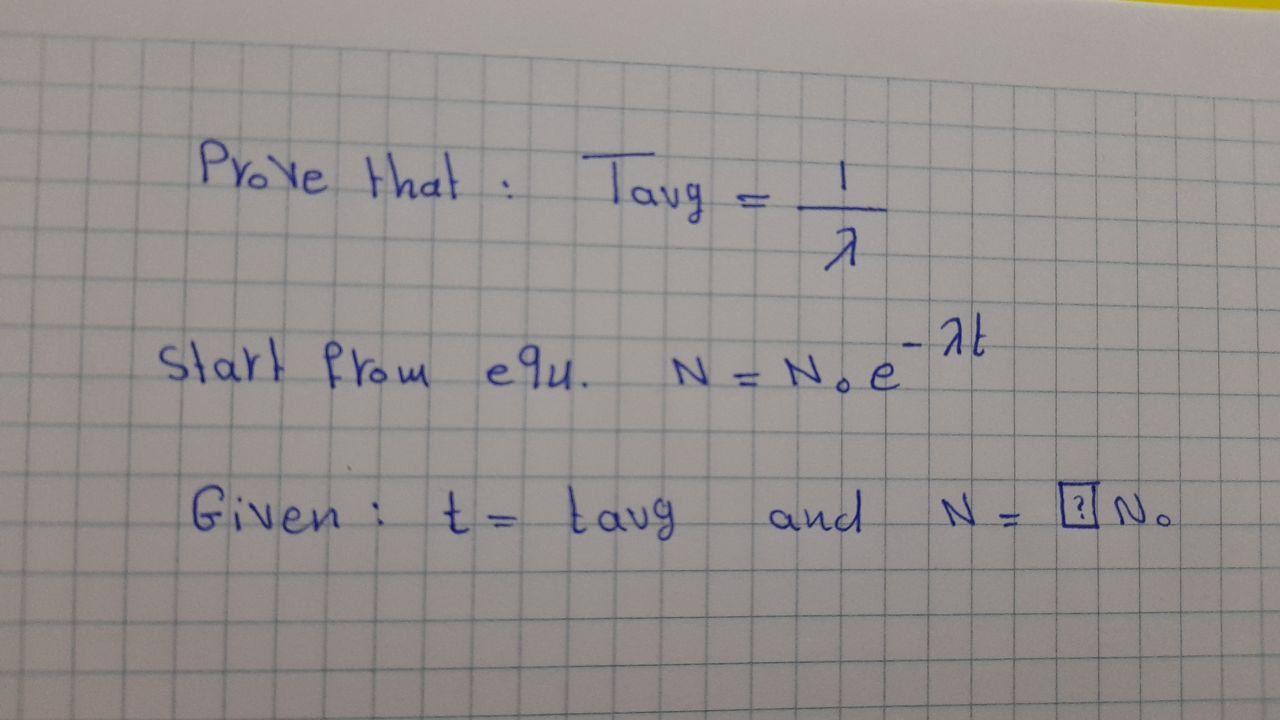 Prove that : Tavg = 1/λ
Start from equ. N = N₀ e^-λt
Given : t = tavg and N = [?] N₀